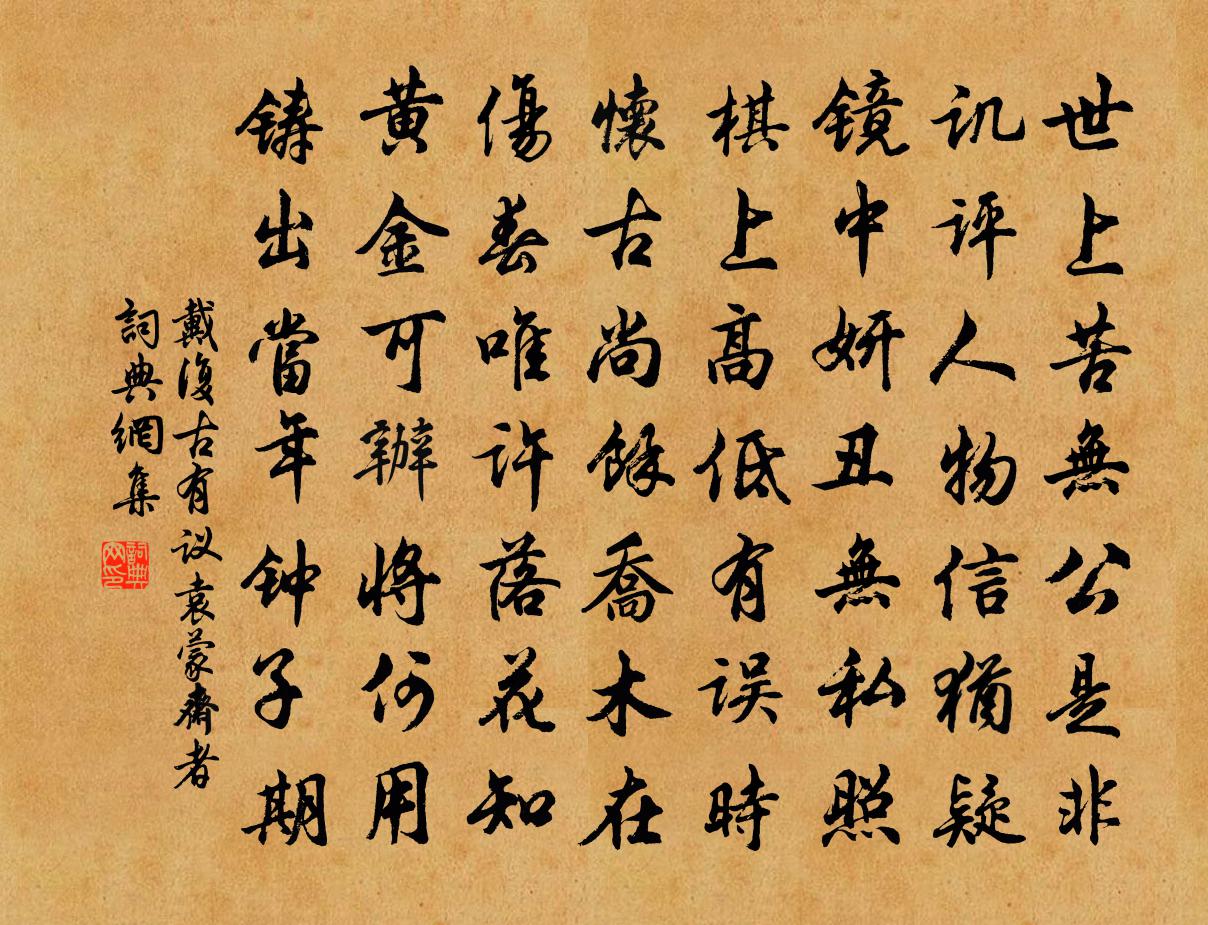 世上苦無公是非
讥评人物信猶疑
镜中妍丑無私照
棋上高低有误時
懷古尚餘喬木在
傷春唯许落花知
黄金可辦將何用
铸出當年钟子期
戴復古有议袁蒙齋者
詞典網集
詞典网印